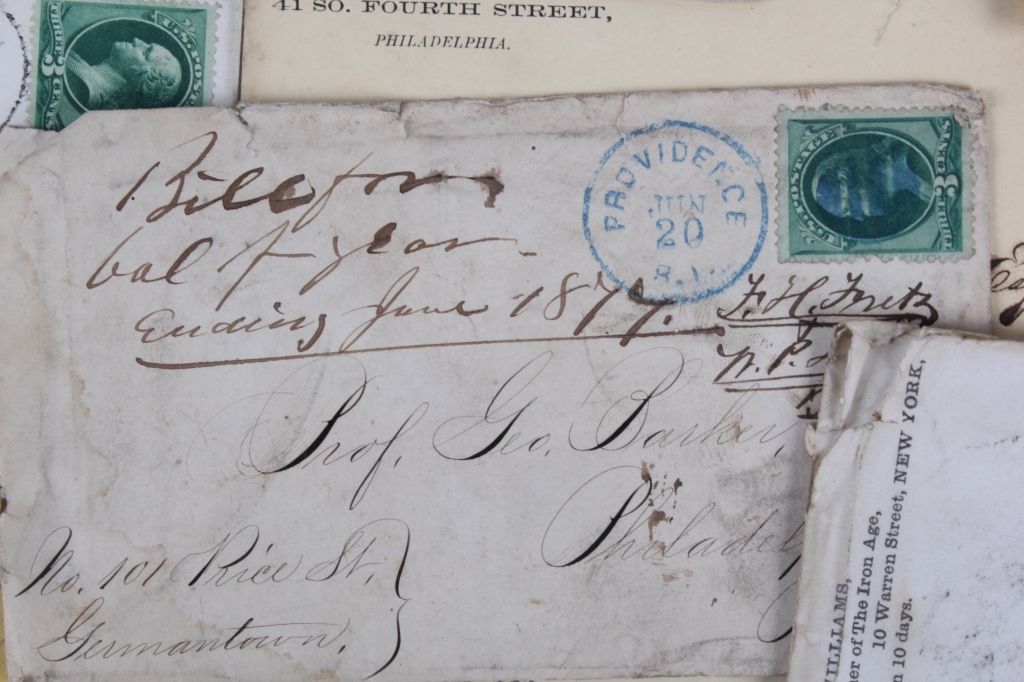 41 SO. FOURTH STREET,
PHILADELPHIA.
U.S. POST
THREE 3 CENTS
Bill for
bal of year
Ending June 1877.
PROVIDENCE
JUN
20
R.I.
U.S. POSTAGE
THREE 3 CENTS
F. H. Fretz
W. P.
Prof. Geo. Barker,
Philadel
No. 101 Rice St.
Germantown.
ILLIAMS,
er of The Iron Age,
10 Warren Street, NEW YORK,
n 10 days.